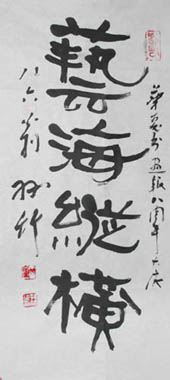 书画报八周年大庆
藝海縱橫
八六翁
竹